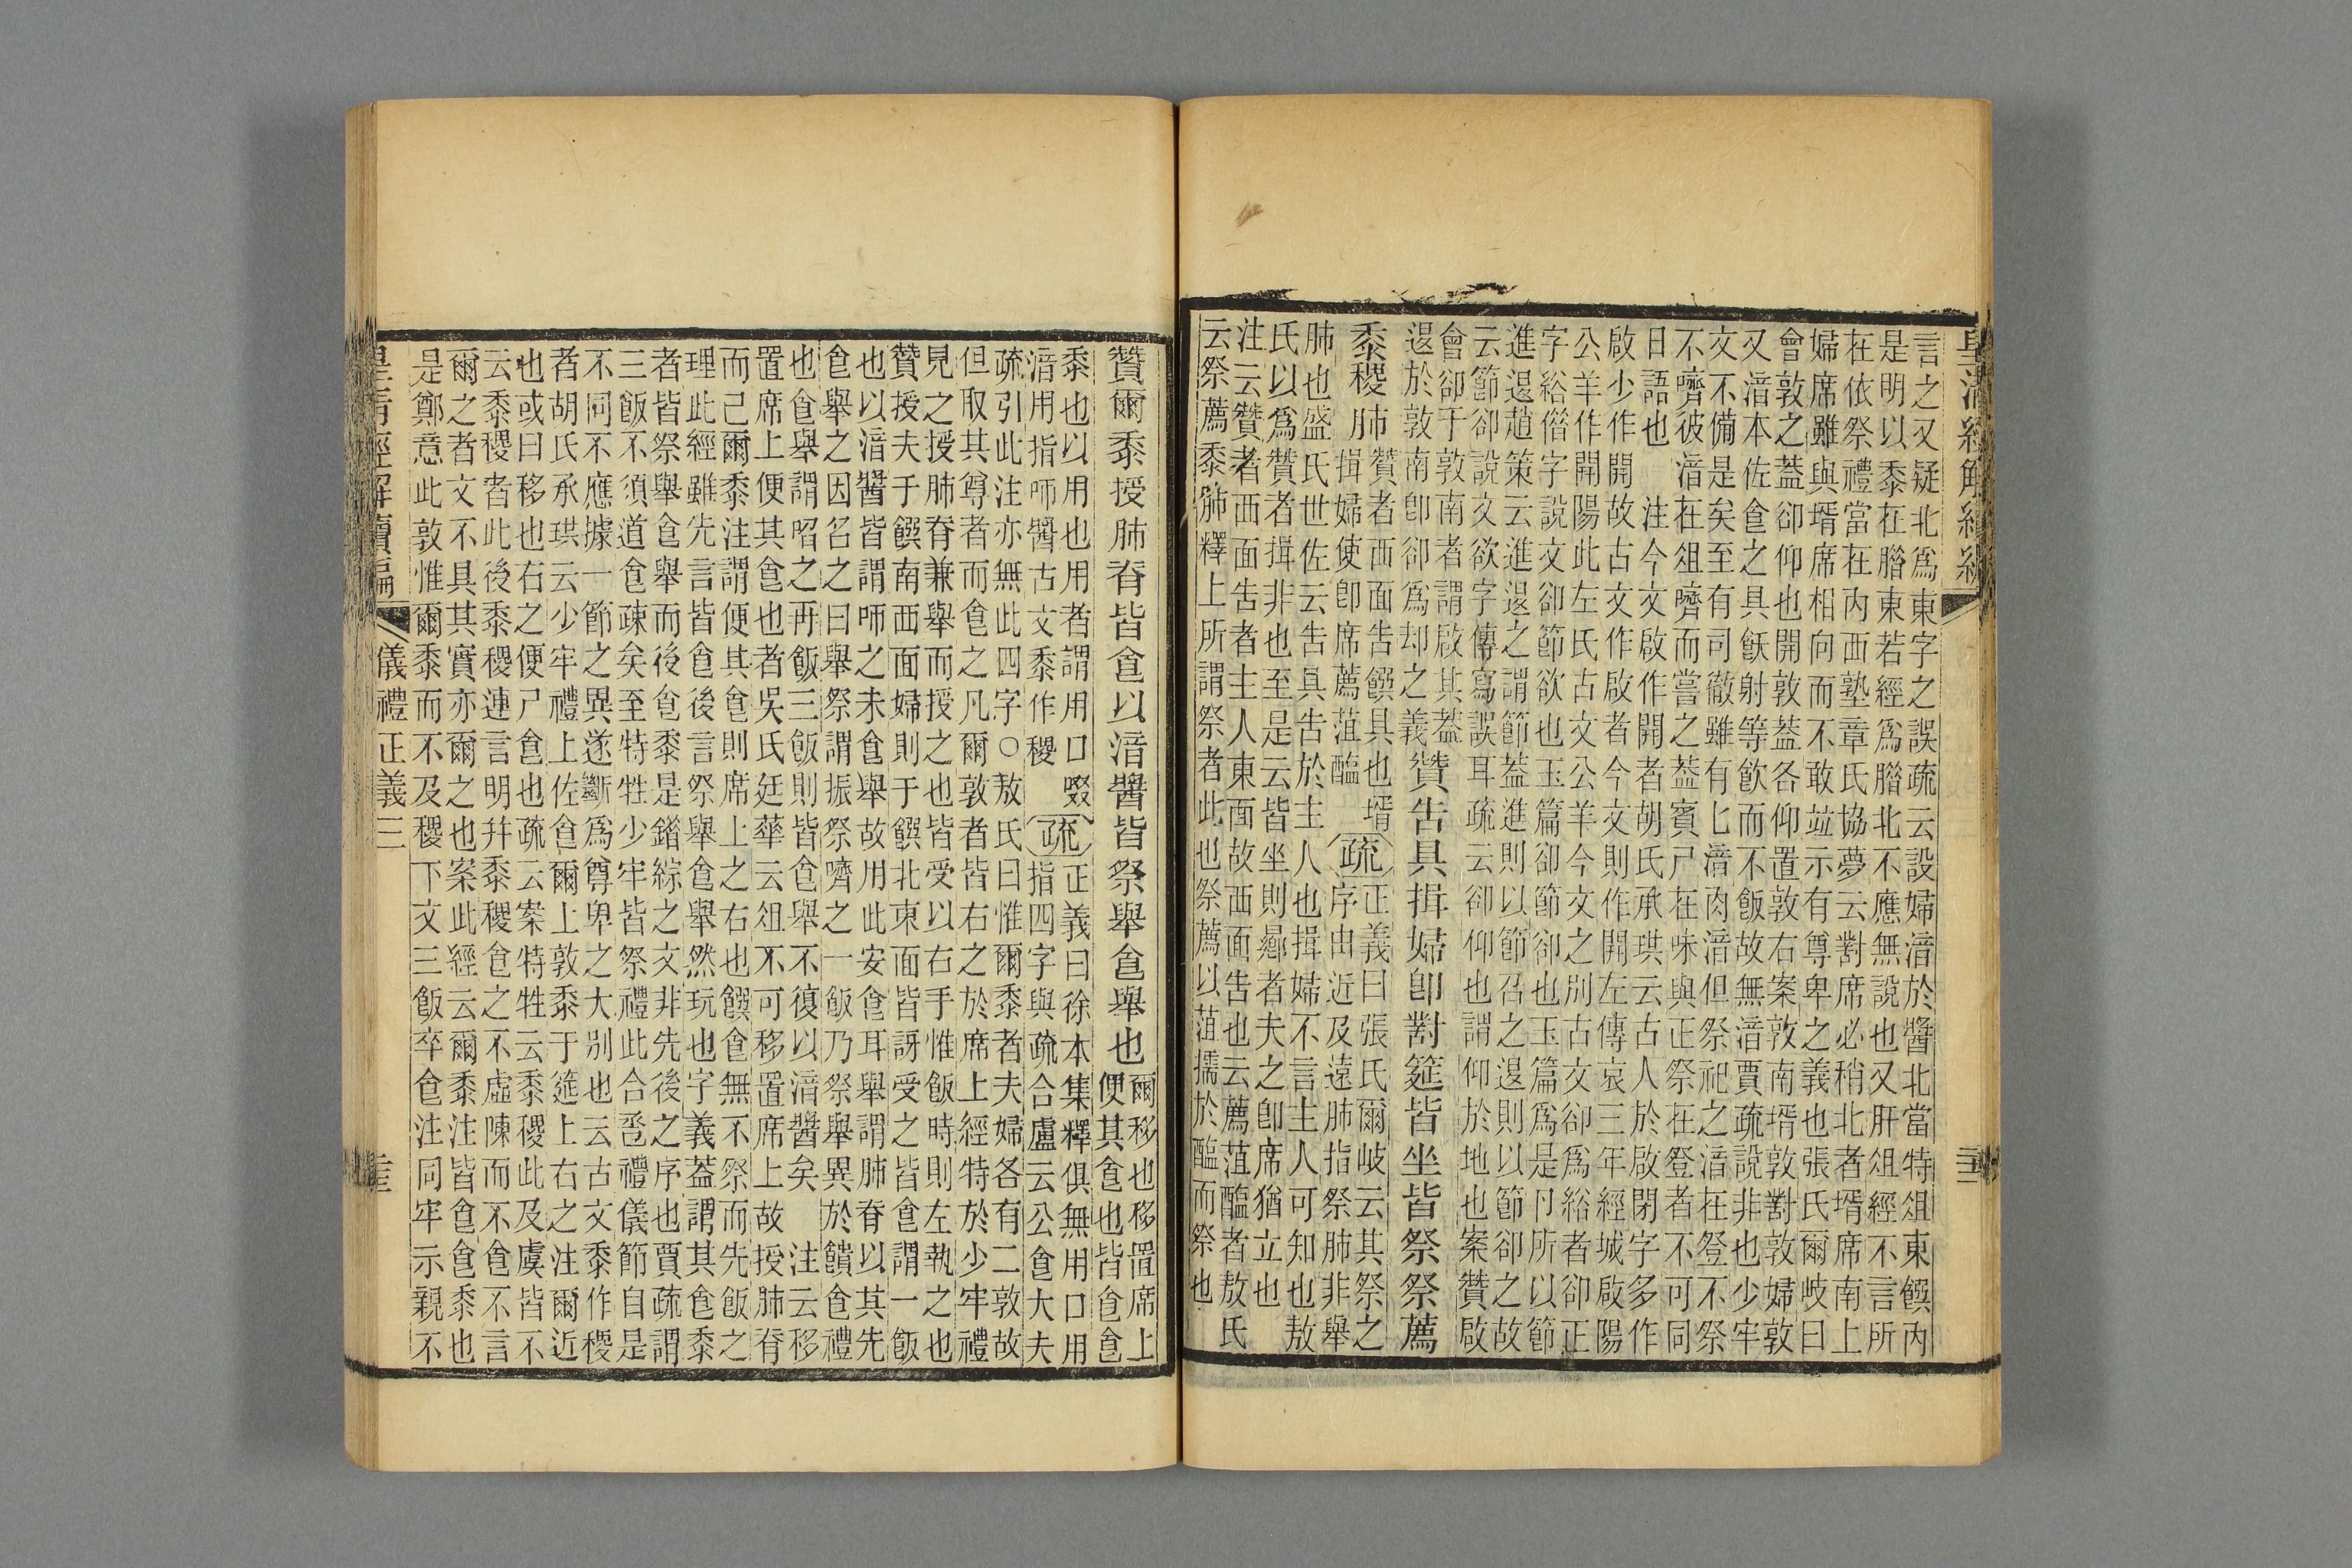 皇清經解續編
言之又疑北爲東字之誤疏云設婦湆於醬北當特俎東饌內
是明以黍在腊東若經爲腊北不應無說也又肝俎經不言所
在依祭禮當在內西塾章氏協夢云對席必稍北者壻席南上
婦席雖與壻席相向而不敢竝示有尊卑之義也張氏爾岐曰
會敦之蓋卻仰也開敦蓋各仰置敦右案敦南壻敦對敦婦敦
又湆本佐食之具飫射等飮而不飯故無湆賈疏說非也少牢
文不備是矣至有司徹雖有匕湆肉湆但祭祀之湆在登不祭
不嚌彼湆在俎嚌而嘗之葢賓尸在味與正祭在登者不可同
日語也　注今文啟作開者胡氏承珙云古人於啟閉字多作
啟少作開故古文作啟者今文則作開左傳哀三年經城啟陽
公羊作開陽此左氏古文公羊今文之別古文卻爲綌者卻正
字綌俗字說文卻節欲也玉篇卻節卻也玉篇爲是卪所以節
進退趙策云進退之謂節葢進則以節召之退則以節卻之故
云節卻說文欲字傳寫誤耳疏云卻仰也謂仰於地也案贊啟
會卻于敦南者謂啟其葢
退於敦南卽卻爲却之義贊告具揖婦卽對筵皆坐皆祭祭薦
黍稷肺贊者西面告饌具也壻
揖婦使卽席薦菹醢疏正義曰張氏爾岐云其祭之
序由近及遠肺指祭肺非舉
肺也盛氏世佐云告具告於主人也揖婦不言主人可知也敖
氏以爲贊者揖非也至是云皆坐則曏者夫之卽席猶立也
注云贊者西面告者主人東面故西面告也云薦菹醢者敖氏
云祭薦黍肺釋上所謂祭者此也祭薦以菹擩於醢而祭也
贊爾黍授肺脊皆食以湆醬皆祭舉食舉也爾移也移置席上
便其食也皆食食
黍也以用也用者謂用口啜
湆用指咂醬古文黍作稷疏正義曰徐本集釋俱無用口用
指四字與疏合盧云公食大夫
疏引此注亦無此四字○敖氏曰惟爾黍者夫婦各有二敦故
但取其尊者而食之凡爾敦者皆右之於席上經特於少牢禮
見之授肺脊兼舉而授之也皆受以右手惟飯時則左執之也
贊授夫于饌南西面婦則于饌北東面皆訝受之皆食謂一飯
也以湆醬皆謂咂之未食舉故用此安食耳舉謂肺脊以其先
食舉之因名之曰舉祭謂振祭嚌之一飯乃祭舉異於饋食禮
也食舉謂咂之再飯三飯則皆食舉不復以湆醬矣　注云移
置席上便其食也者吳氏廷華云俎不可移置席上故授肺脊
而已爾黍注謂便其食則席上之右也饌食無不祭而先飯之
理此經雖先言皆食後言祭舉食舉然玩也字義葢謂其食黍
者皆祭舉食舉而後食黍是錯綜之文非先後之序也賈疏謂
三飯不須道食疎矣至特牲少牢皆祭禮此合巹禮儀節自是
不同不應據一節之異遂斷爲尊卑之大別也云古文黍作稷
者胡氏承珙云少牢禮上佐食爾上敦黍于筵上右之注爾近
也或曰移也右之便尸食也疏云案特牲云黍稷此及虞皆不
云黍稷者此後黍稷連言明幷黍稷食之不虛陳而不食不言
爾之者文不具其實亦爾之也案此經云爾黍注皆食食黍也
是鄭意此敦惟爾黍而不及稷下文三飯卒食注同牢示親不
皇清經解續編　儀禮正義三